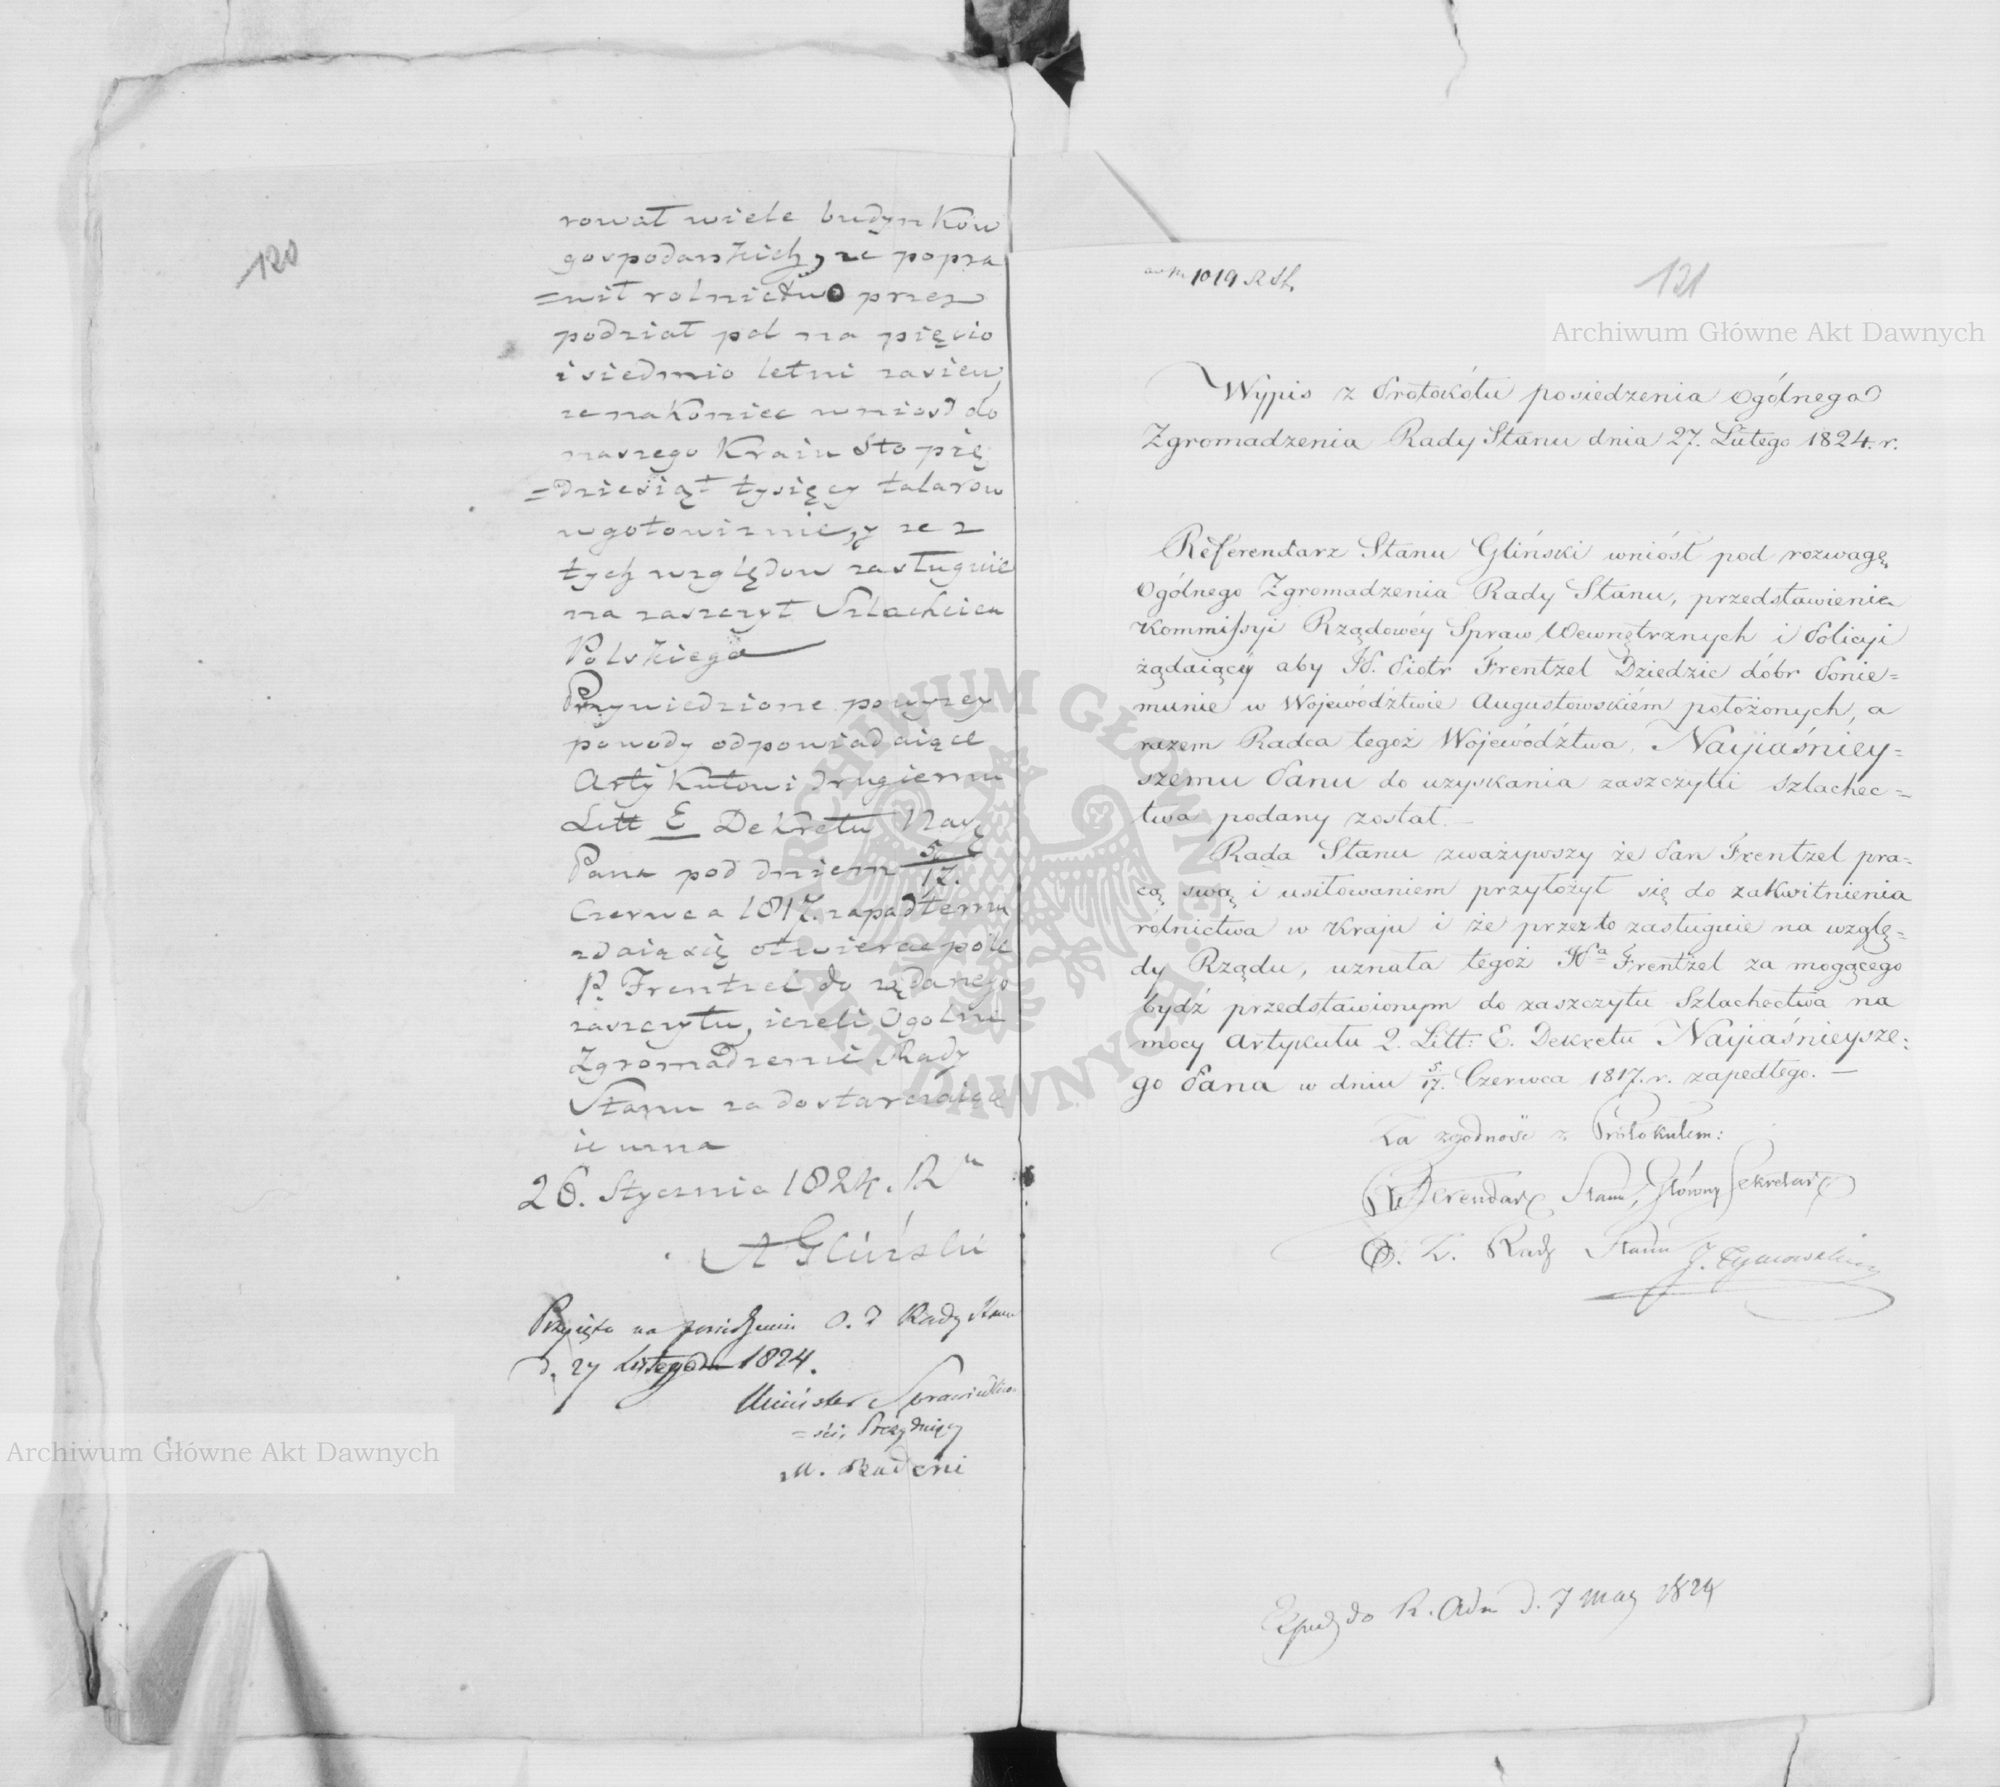 120
rował wiele budynków
gospodarskich, ze popra
=wił rolnictwo przez
podział pol na pięcio
i siedmio letni zasiew,
ze nakoniec wniosł do
naszego Kraiu Sto pię
=dziesiąt tysięcy talarow
w gotowiznie, y ze z
tych względow zasługuie
na zaszczyt Szlachcica
Polskiego
Przywiedzione powyzey
powody odpowiadaiące
Artykułowi drugiemu
Litt E Dekretu Nay
Pana pod dniem 5/17.
Czerwca 1817. zapadłemu
zdaią się otwierac pole
P. Frentzel do rządanego
zaszczytu, iezeli Ogolne
Zgromadzenie Rady
Stanu za dostarczaiące
ie uzna
26. Stycznia 1824. R
A Gliński
Przyięto na posiedzeniu O. Z Rady Stanu
d. 27 Lutego 1824.
Minister Sprawiedliwo-
=ści, Prezyduiący
M. Badeni
1019 R St.
121
Archiwum Główne Akt Dawnych
Wypis z Protokółu posiedzenia Ogólnego
Zgromadzenia Rady Stanu dnia 27. Lutego 1824. r.
Referendarz Stanu Gliński wniósł pod rozwagę
Ogólnego Zgromadzenia Rady Stanu, przedstawienie
Kommissyi Rządowéy Spraw Wewnętrznych i Policyi
żądaiącéy aby W. Piotr Frentzel Dziedzic dóbr Ponie=
munie w Województwie Augustowskiém położonych, a
razem Radca tegoż Województwa, Nayiaśniey=
szemu Panu do uzyskania zaszczytu szlachec=
twa podany został.—
Rada Stanu zważywszy że Pan Frentzel pra=
cą swą i usiłowaniem przyłożył się do zakwitnienia
rolnictwa w kraju i że przez to zasługuie na wzglę=
dy Rządu, uznała tegoż Wa Frentzel za mogącego
bydź przedstawionym do zaszczytu Szlachectwa na
mocy Artykułu 2. Litt: E. Dekretu Nayiaśnieysze=
go Pana w dniu 5/17. Czerwca 1817. r. zapadłego.—
Za zgodność z Protokułem:
Referendarz Stanu, Główny Sekretarz
O. Z. Rady Stanu J. Tymowski
Exped do R. Adm d. 7 May 1824
Archiwum Główne Akt Dawnych
ARCHIWUM GŁÓWNE AKT DAWNYCH